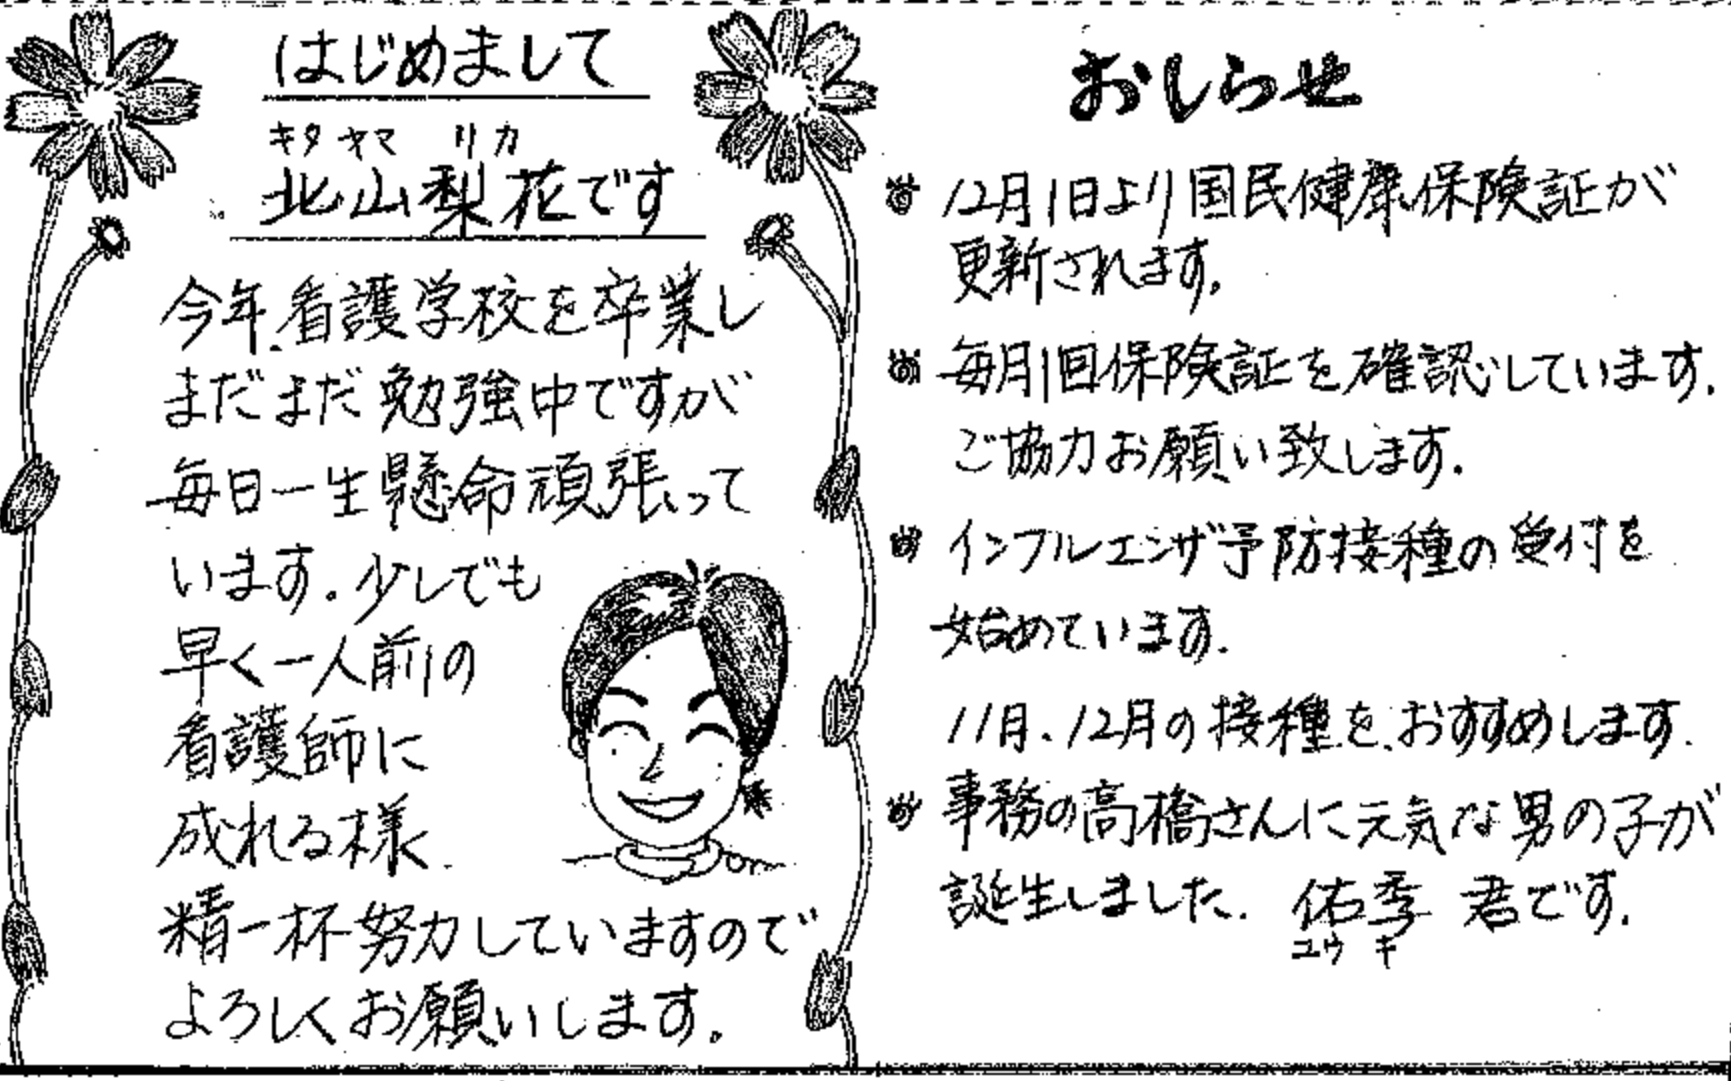 はじめまして
キタヤマ リカ
北山梨花です
今年、看護学校を卒業し
まだまだ勉強中ですが
毎日一生懸命頑張って
います。少しでも
早く一人前の
看護師に
成れる様
精一杯努力していますので
よろしくお願いします。
おしらせ
12月1日より国民健康保険証が
更新されます。
毎月1回保険証を確認しています。
ご協力お願い致します。
インフルエンザ予防接種の受付を
始めています。
11月、12月の接種を、おすすめします。
事務の高橋さんに元気な男の子が
誕生しました。佑季君です。
ユウキ